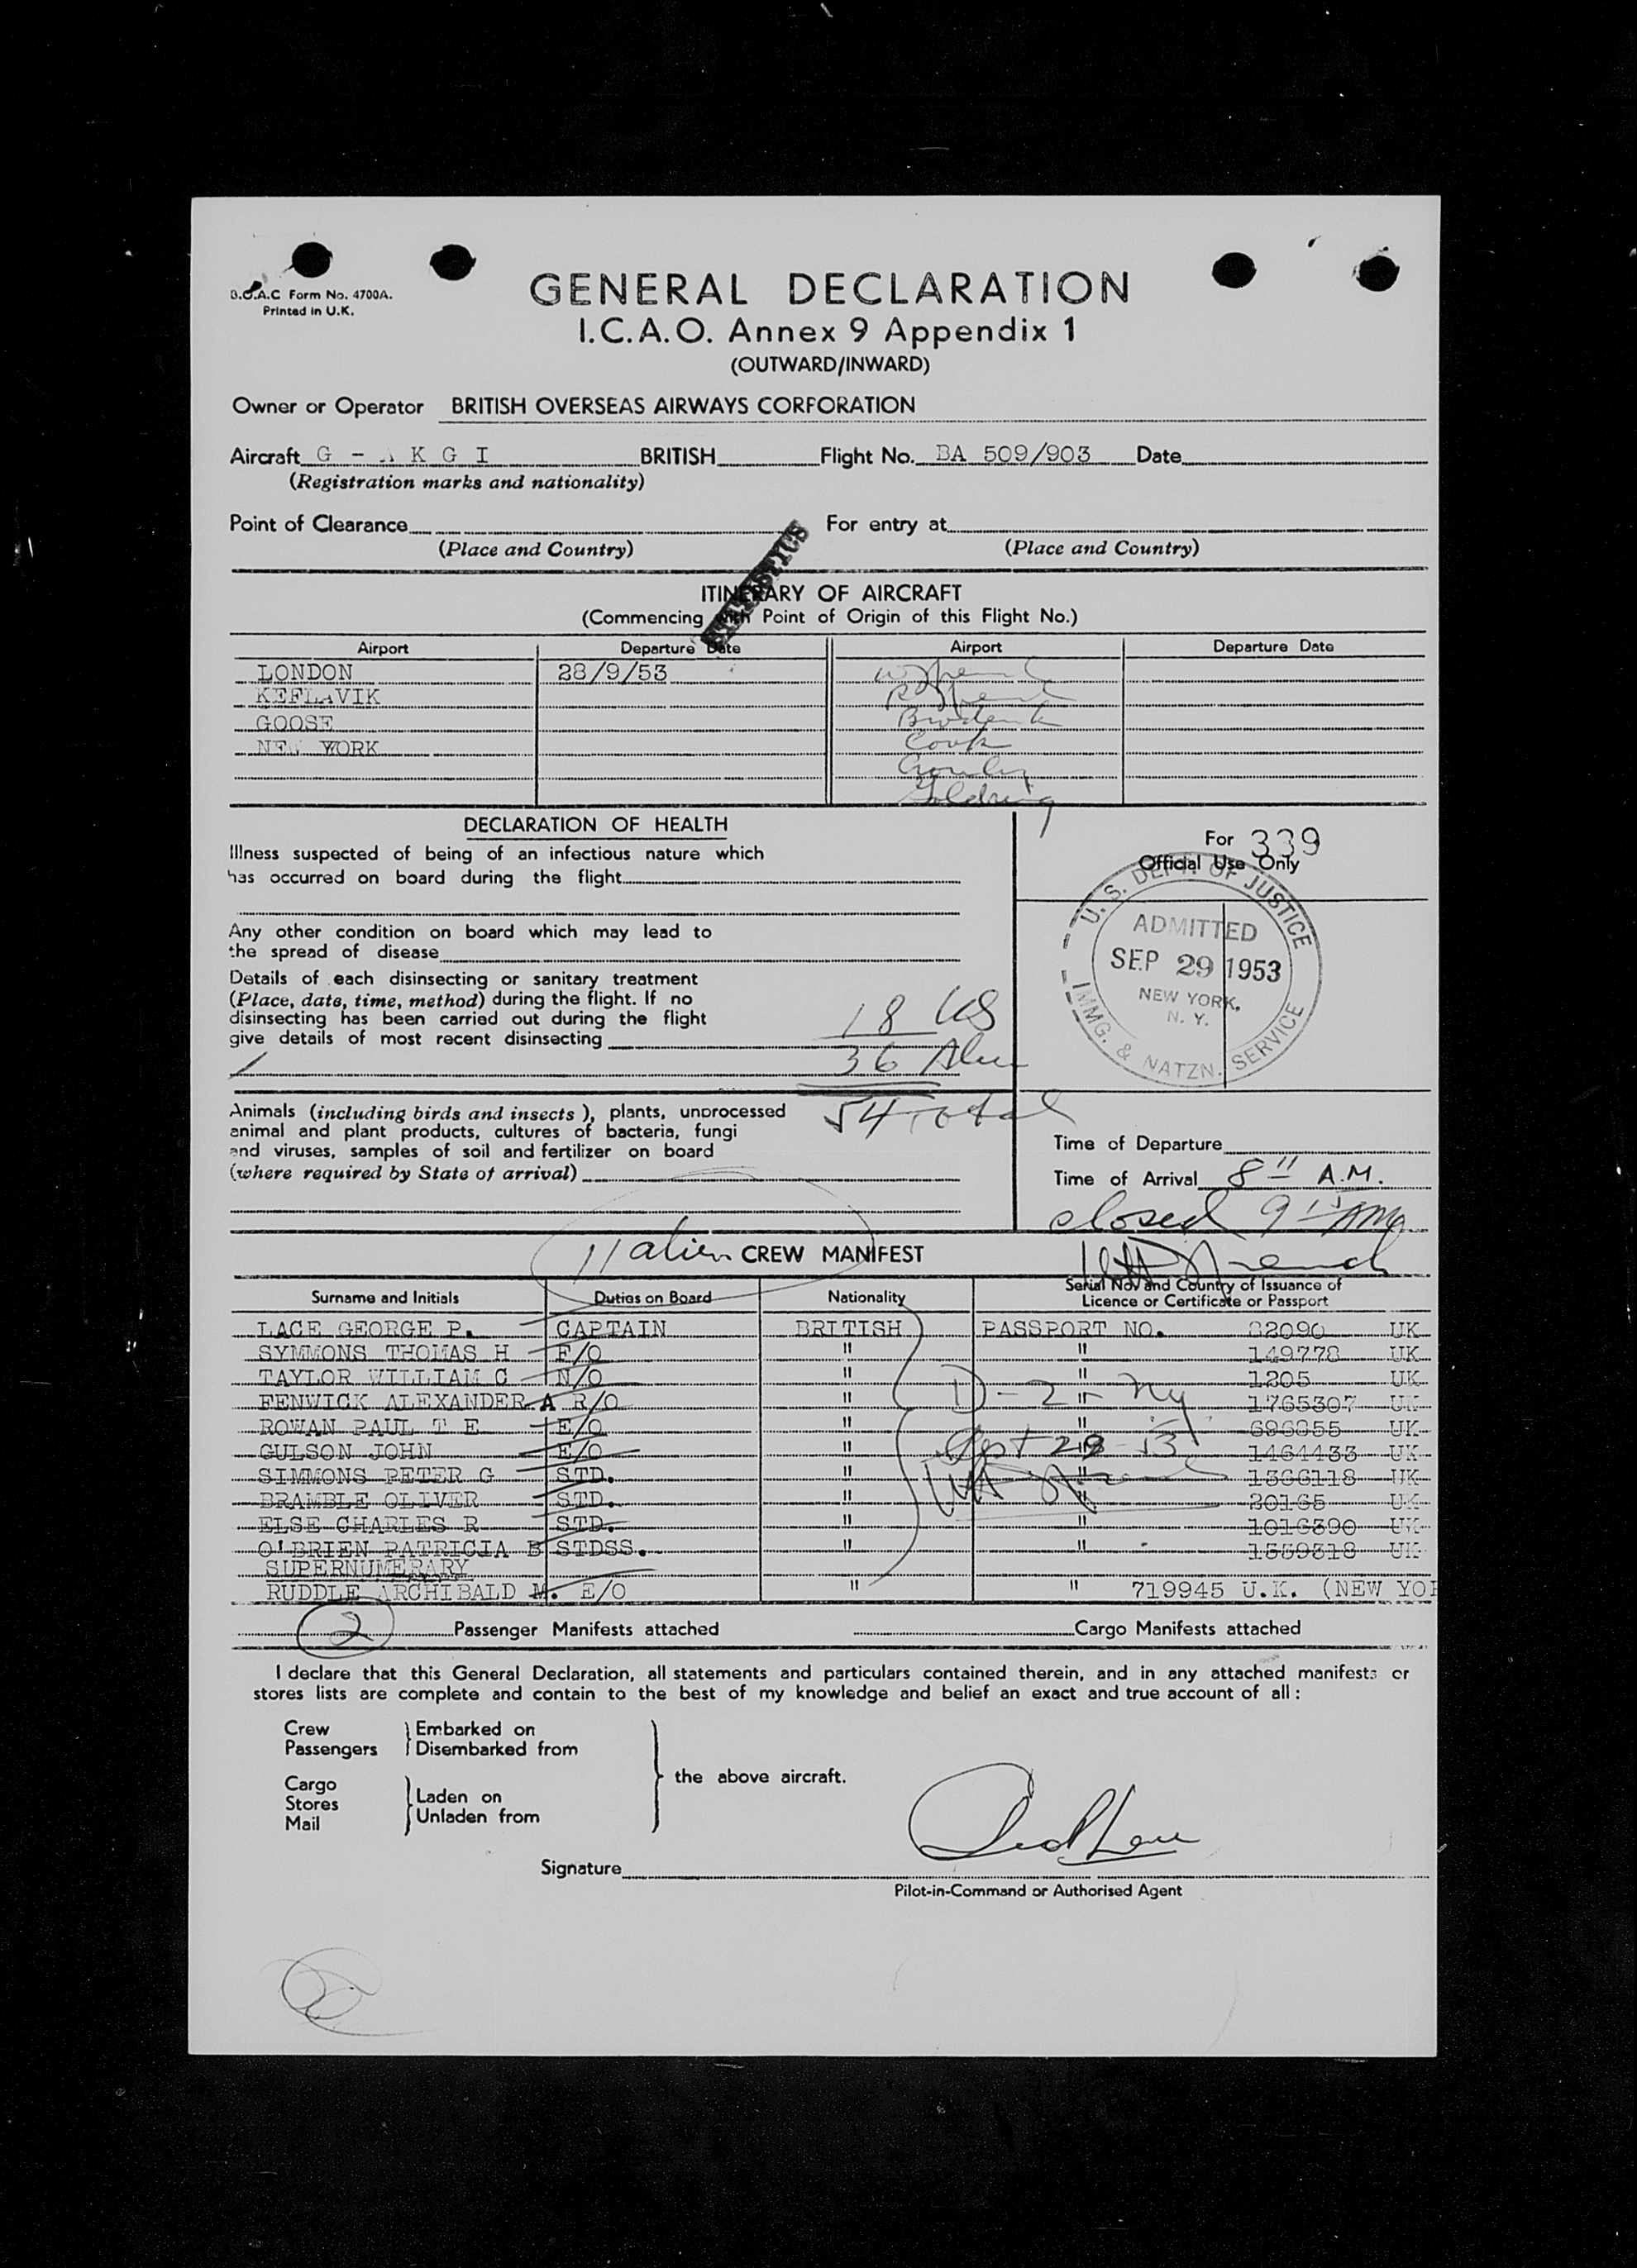 B.O.A.C Form No. 4700A.
Printed in U.K.
GENERAL DECLARATION
I.C.A.O. Annex 9 Appendix 1
(OUTWARD/INWARD)
Owner or Operator BRITISH OVERSEAS AIRWAYS CORPORATION
Aircraft G - A K G I BRITISH Flight No. BA 509/903 Date
(Registration marks and nationality)
Point of Clearance For entry at
(Place and Country) (Place and Country)
STATISTICS
ITINERARY OF AIRCRAFT
(Commencing with Point of Origin of this Flight No.)
Airport Departure Date Airport Departure Date
LONDON 28/9/53
KEFLAVIK
GOOSE
NEW YORK Cook
Crowley
Goldring
DECLARATION OF HEALTH
For 339
Official Use Only
Illness suspected of being of an infectious nature which
has occurred on board during the flight
Any other condition on board which may lead to
the spread of disease
Details of each disinsecting or sanitary treatment
(Place, date, time, method) during the flight. If no
disinsecting has been carried out during the flight
give details of most recent disinsecting
18 US
36 Alien
54 Total
U.S. DEPT. OF JUSTICE
ADMITTED
SEP 29 1953
NEW YORK,
N. Y.
IMMG. & NATZN. SERVICE
Animals (including birds and insects), plants, unprocessed
animal and plant products, cultures of bacteria, fungi
and viruses, samples of soil and fertilizer on board
(where required by State of arrival)
Time of Departure
Time of Arrival 8 11 A.M.
closed 9 AM
11 alien CREW MANIFEST
Surname and Initials Duties on Board Nationality Serial No. and Country of Issuance of
Licence or Certificate or Passport
LACE GEORGE P. CAPTAIN BRITISH PASSPORT NO. 82090 UK
SYMMONS THOMAS H F/O " " 149778 UK
TAYLOR WILLIAM C N/O " " 1205 UK
FENWICK ALEXANDER A R/O " " 1765307 UK
ROWAN PAUL T E E/O " " 696855 UK
GULSON JOHN E/O " " 1464433 UK
SIMMONS PETER G STD. " " 1366118 UK
BRAMBLE OLIVER STD. " " 20165 UK
ELSE CHARLES R STD. " " 1016390 UK
O'BRIEN PATRICIA B STDSS. " " 1559318 UK
SUPERNUMERARY
RUDDLE ARCHIBALD M. E/O " " 719945 U.K. (NEW YOR
D-2 - NY
Sept 29 - 53
2 Passenger Manifests attached Cargo Manifests attached
I declare that this General Declaration, all statements and particulars contained therein, and in any attached manifests or
stores lists are complete and contain to the best of my knowledge and belief an exact and true account of all :
Crew Embarked on
Passengers Disembarked from
the above aircraft.
Cargo
Stores Laden on
Mail Unladen from
Signature
Pilot-in-Command or Authorised Agent